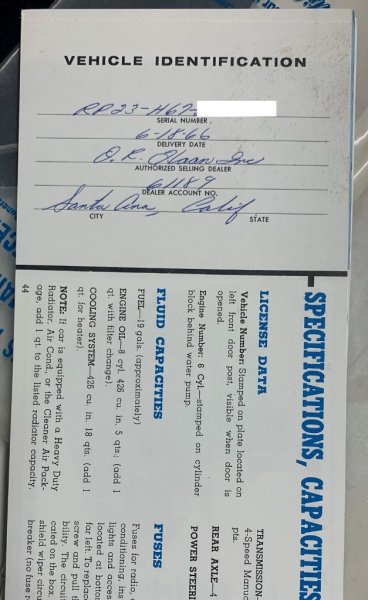 VEHICLE IDENTIFICATION
RP23-H67-
SERIAL NUMBER
6-18-66
DELIVERY DATE
O. R. Haan Inc
AUTHORIZED SELLING DEALER
61189
DEALER ACCOUNT NO.
Santa Ana, Calif
CITY STATE
SPECIFICATIONS, CAPACITIES
LICENSE DATA
Vehicle Number: Stamped on plate located on
left front door post, visible when door is
opened.
Engine Number: 6 Cyl.—stamped on cylinder
block behind water pump.
FLUID CAPACITIES
FUEL—19 gals (approximately)
ENGINE OIL—8 cyl. 426 cu. in. 5 qts.; (add 1
qt. with filter change).
COOLING SYSTEM—426 cu. in. 18 qts. (add 1
qt. for heater).
NOTE: If car is equipped with a Heavy Duty
Radiator, Air Cond., or the Cleaner Air Pack-
age, add 1 qt. to the listed radiator capacity.
44
TRANSMISSION—
4-Speed Manual
pts.
REAR AXLE—4
POWER STEERI
FUSES
Fuses for radio,
conditioning, ins
lights and acces
located at bottom
far left. To replac
screw and pull t
bility. The circui
cated on the box
shield wiper circu
breaker (no fuse r